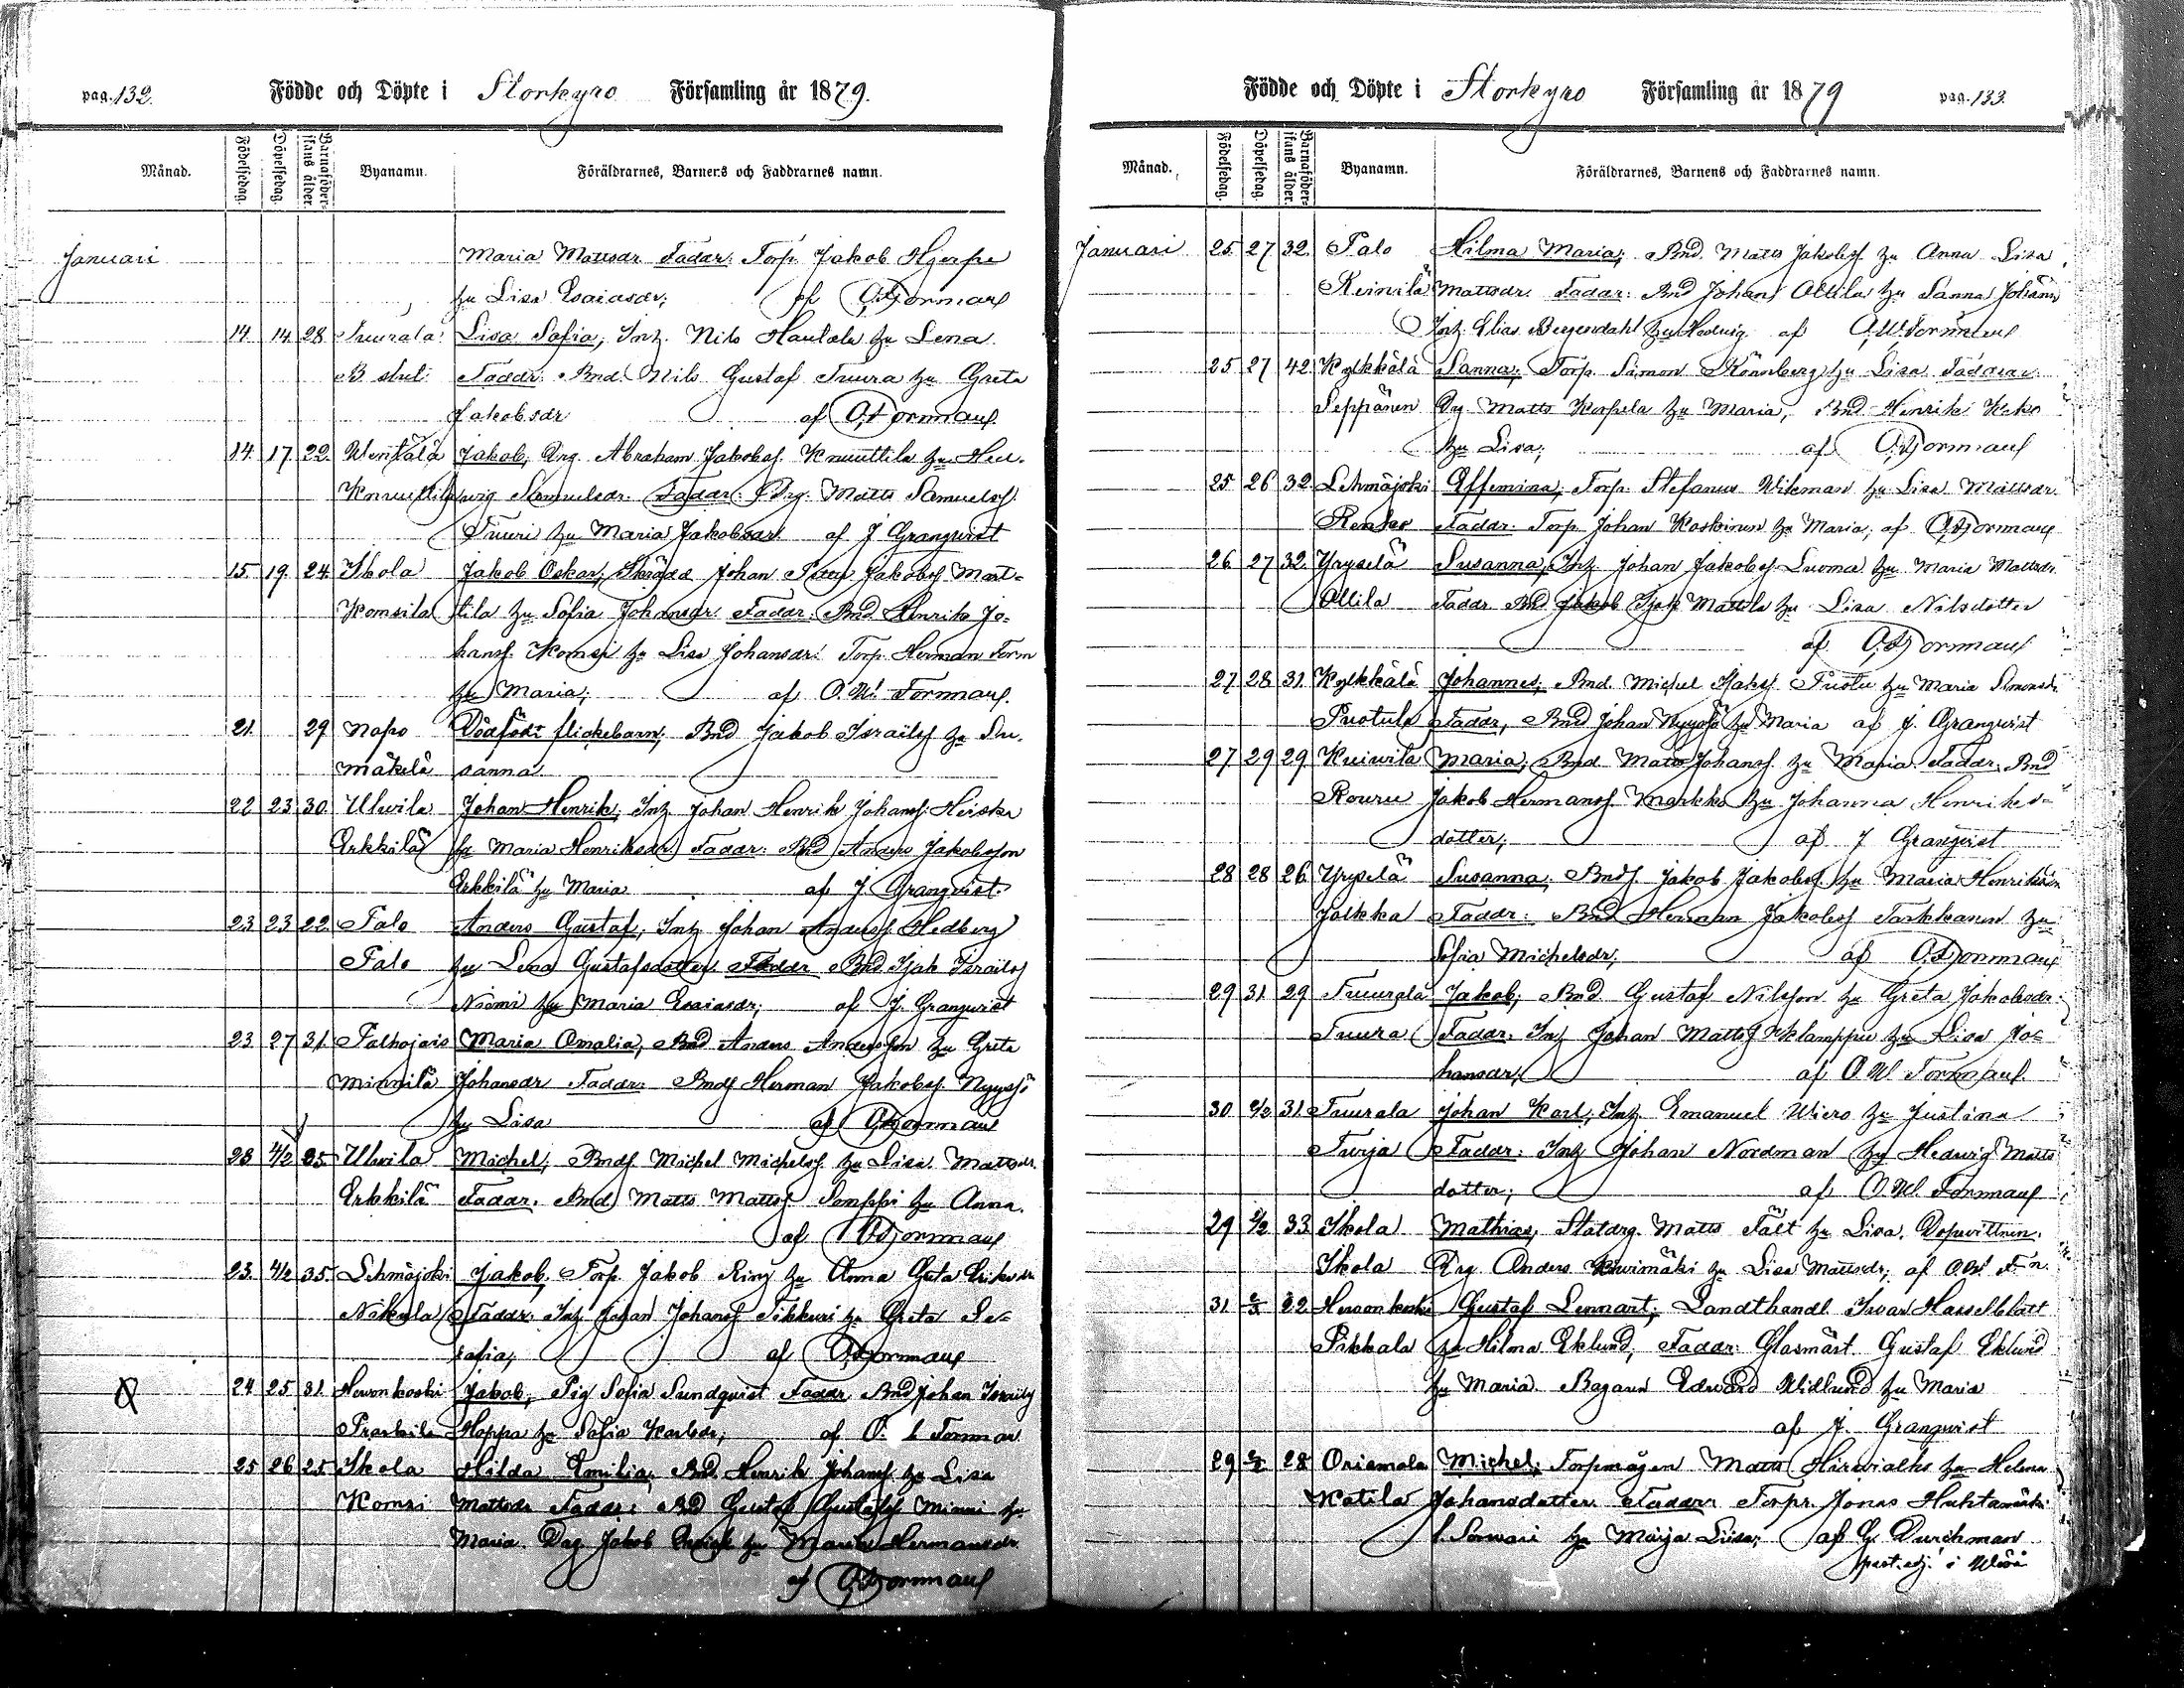 pag. 132.
Födde och Döpte i Storkyro Församling år 1879.
Månad. Födelsedag. Döpelsedag. Barnaföder-skans ålder. Byanamn. Föräldrarnes, Barnens och Faddrarnes namn.
Januari Maria Mattsdr Faddr: Torp. Jakob Hjerpe
hu Lisa Esaiasdr; af O.W. Forrman
14. 14. 28 Tuurala Lisa Sofia, Inh. Nils Hautala hu Lena
Faddr: Bnd. Nils Gustaf Tuura hu Greta
Jakobsdr af O.W. Forrman
14. 17. 22. Wentälä Jakob, Drg. Abraham Jakobss. Knuuttila hu Hed-
Knuuttila wig Samuelsdr. Faddr: Drg. Matts Samuelss.
Tuuri hu Maria Jakobsdr af J Granqvist
15. 19. 24 Ikola Jakob Oskar, Skrädd Johan Jakobss. Mart-
Komsila tila hu Sofia Johansdr. Faddr: Bnd. Henrik Jo-
hanss. Komsi hu Lisa Johansdr. Torp. Herman Form
hu Maria; af O. W. Forrman.
21. 29 Napo Dödfödt flickebarn; Bnd Jakob Israelss hu Su-
Mäkelä sanna
22 23 30 Ulwila Johan Henrik, Inh. Johan Henrik Johanss. Heiska
Erkkilä hu Maria Henriksdr Faddr: Bnd Anders Jakobsson
Erkkilä hu Maria af J Granqvist.
23 23 22 Palo Anders Gustaf, Inh Johan Anderss. Hedberg
Palo hu Lena Gustafsdotter Faddr Bnd Isak Israelss
Niemi hu Maria Esaiasdr; af J. Granqvist
23 27 31 Palhojais Maria Amalia, Bnd Anders Andersson hu Greta
Minnilä Johansdr Faddr: Bnds Herman Jakobss. Nyyssö
hu Lisa af O.W. Forrman
23 4/2 25 Ulwila Michel; Bnds. Michel Michelss. hu Lisa Mattsdr.
Erkkilä Faddr. Bnd Matts Mattss. Semppi hu Anna
af O.W. Forrman
23. 4/2 35 Lehmäjoki Jakob, Torp. Jakob Ring hu Anna Greta Eriksdr
Nikula Faddr. Inh Johan Johanss Tikkuri hu Greta Se-
rafia; af O.W. Forrman
24 25 31 Herwonkoski Jakob, Pig Sofia Sundqvist Faddr Bnd Johan Israelss
Hoppa hu Sofia Karlsdr; af O. Forrman
25 26 25 Ikola Hilda Emilia, Bnd. Henrik Johanss. hu Lisa
Komsi Mattsdr Faddr: Bnd Gustaf Gustafss Minni hu
Maria. Drg Jakob hu Maria Hermansdr
af O.W. Forrman
Födde och Döpte i Storkyro Församling år 1879
pag. 133.
Månad. Födelsedag. Döpelsedag. Barnaföder-skans ålder. Byanamn. Föräldrarnes, Barnens och Faddrarnes namn.
Januari 25 27 32 Palo Hilma Maria; Bnd. Matts Jakobss. hu Anna Lisa
Reinilä Mattsdr. Faddr: Bnd Johan Attila hu Sanna
Inh. Elias Bergendahl hu Hedwig af O.W. Forrman
25 27 42 Kylkkälä Sanna; Torp. Simon hu Lisa Faddrar:
Seppänen Drg Matts Karpela hu Maria, Bnd Henrik Keko
hu Lisa; af O.W. Forrman
25 26 32 Lehmäjoki Effemina; Torp. Stefanus Wikman hu Lisa Mattsdr.
Renko Faddr: Torp Johan Koskinen hu Maria; af O.W. Forrman
26 27 32 Yryselä Susanna, Inh. Johan Jakobss Luoma hu Maria Mattsdr
Attila Faddr Bnd Jakob Isak Mattila hu Lisa Nilsdotter
af O.W. Forrman
27 28 31 Kylkkälä Johannes; Bnd. Michel Isakss. Puotu hu Maria Simonsdr
Puotula Faddr, Bnd Johan Nyyssö hu Maria af J. Granqvist
27 29 29 Kuiwila Maria; Bnd Matts Johanss hu Maria. Faddr. Bnd
Rouru Jakob Hermanss Markko hu Johanna Henriks-
dotter; af J Granqvist
28 28 26 Yryselä Susanna; Bnds. Jakob Jakobss. hu Maria Henriksdr
Jalkka Faddr: Bnd Herman Jakobss Tarkkanen hu
Sofia Michelsdr; af O.W. Forrman
29 31 29 Tuurala Jakob; Bnd Gustaf Nilsson hu Greta Jakobsdr.
Tuura Faddr. Inh Johan Mattss Klamppu hu Lisa Jo-
hansdr; af O.W. Forrman.
30 2/2 31 Tuurala Johan Karl, Inh. Emanuel Wiero hu Justina
Turja Faddr: Inh Johan Nordman hu Hedwig Matts
dotter; af O.W. Forrman
29 2/2 33 Ikola Mathias, Statdrg. Matts Fält hu Lisa. Dopwittnen.
Ikola Drg Anders Kiwimäki hu Lisa Mattsdr; af O.W. F-n.
31 22 Herwonkoski Gustaf Lennart, Landthandl. Iwar Hasselblatt
Pikkala hu Hilma Eklund, Faddr: Glasmäst. Gustaf Eklund
hu Maria. Bagaren Edward Widlund hu Maria
af J. Granqvist
29 28 Orismala Michel; Torpmågen Matts hu Helena
Kotila Johansdotter. Faddr: Torpr. Jonas Huhtamäki
l. Sorwari hu Maija Liisa; af G Durchman
past. adj. i Wörå